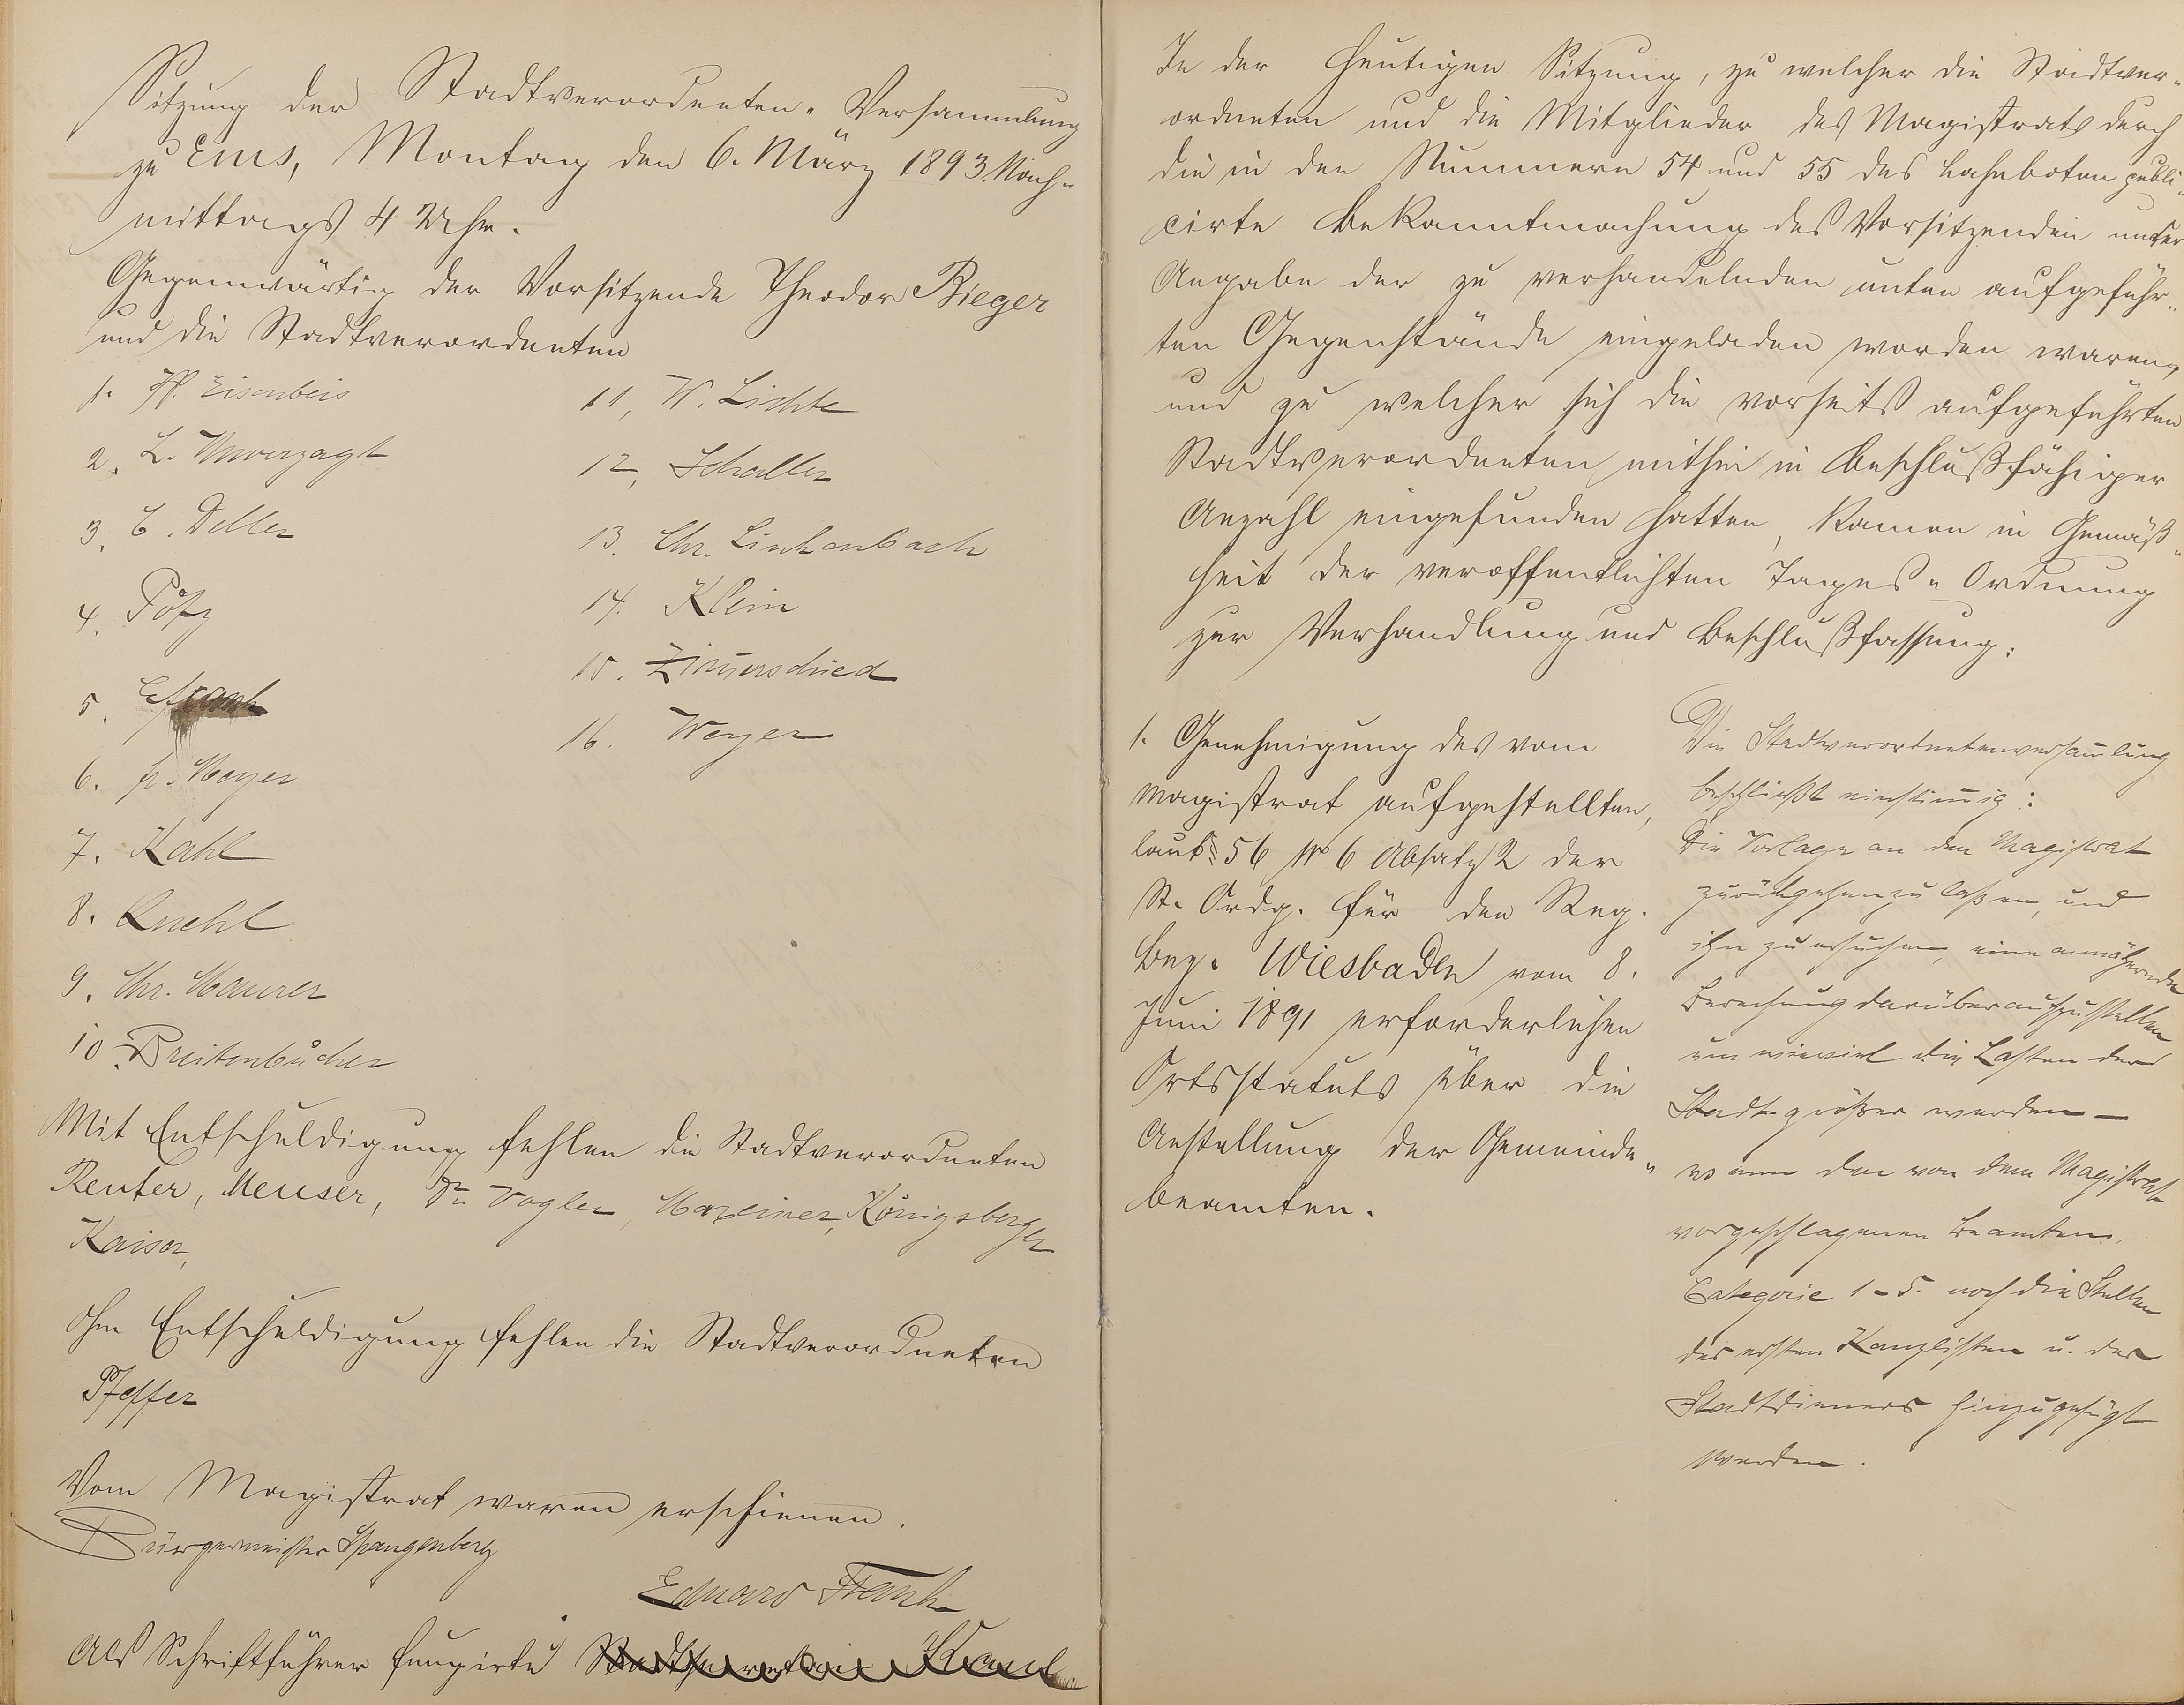 Sitzung der Stadtverordneten-Versammlung
zu Ems, Montag den 6. März 1893 Nach-
mittags 4 Uhr.
Gegenwärtig der Vorsitzende Theodor Rieger
und die Stadtverordneten
1. Eisenbeis
2. L. Unverzagt
3. C. Deller
4. Pötz
5.
6. Mayer
7. Kahl
8. Quehl
9. Chr. Maurer
10. Breitenbücher
11, W. Lichte
12, Schaller
13. Chr. Linkenbach
14. Klein
15. Zimerschied
16. Weyer
Mit Entschuldigung fehlen die Stadtverordneten
Reuter, Meuser, Dr. Vogler, Königsberger
Kaiser,
Ohne Entschuldigung fehlen die Stadtverordneten
Pfeffer
Vom Magistrat waren erschienen.
Bürgermeister Spangenberg
Eduard Frank
Als Schriftführer fungirte
In der heutigen Sitzung, zu welcher die Stadtver-
ordneten und die Mitglieder des Magistrats durch
die in den Nummern 54 und 55 des Lahnboten publi-
cirte Bekanntmachung des Vorsitzenden unter
Angabe der zu verhandelnden unten aufgeführ-
ten Gegenstände eingeladen worden waren,
und zu welcher sich die vorseits aufgeführten
Stadtverordneten mithin in beschlußfähiger
Anzahl eingefunden hatten, kamen in Gemäß-
heit der veröffentlichten Tages-Ordnung
zur Verhandlung und Beschlußfassung:
1. Genehmigung des vom
Magistrat aufgestellten,
laut § 56 № 6 Absatz 2 der
St. Ordg. für den Reg.
Bez. Wiesbaden vom 8.
Juni 1891 erforderlichen
Ortsstatuts über die
Anstellung der Gemeinde-
beamten.
Die Stadtverordnetenversamlung
beschließt einstimig:
Die Vorlage an den Magistrat
zurückgehen zu lassen, und
ihn zu ersuchen, eine annähernde
Berechnung darüber aufzustellen
um wieviel die Lasten der
Stadt größer werden —
wenn den von dem Magistrat
vorgeschlagenen Beamten,
Categorie 1-5. noch die Stellen
des ersten Kanzlisten u. des
Stadtdieners hinzugefügt
werden.